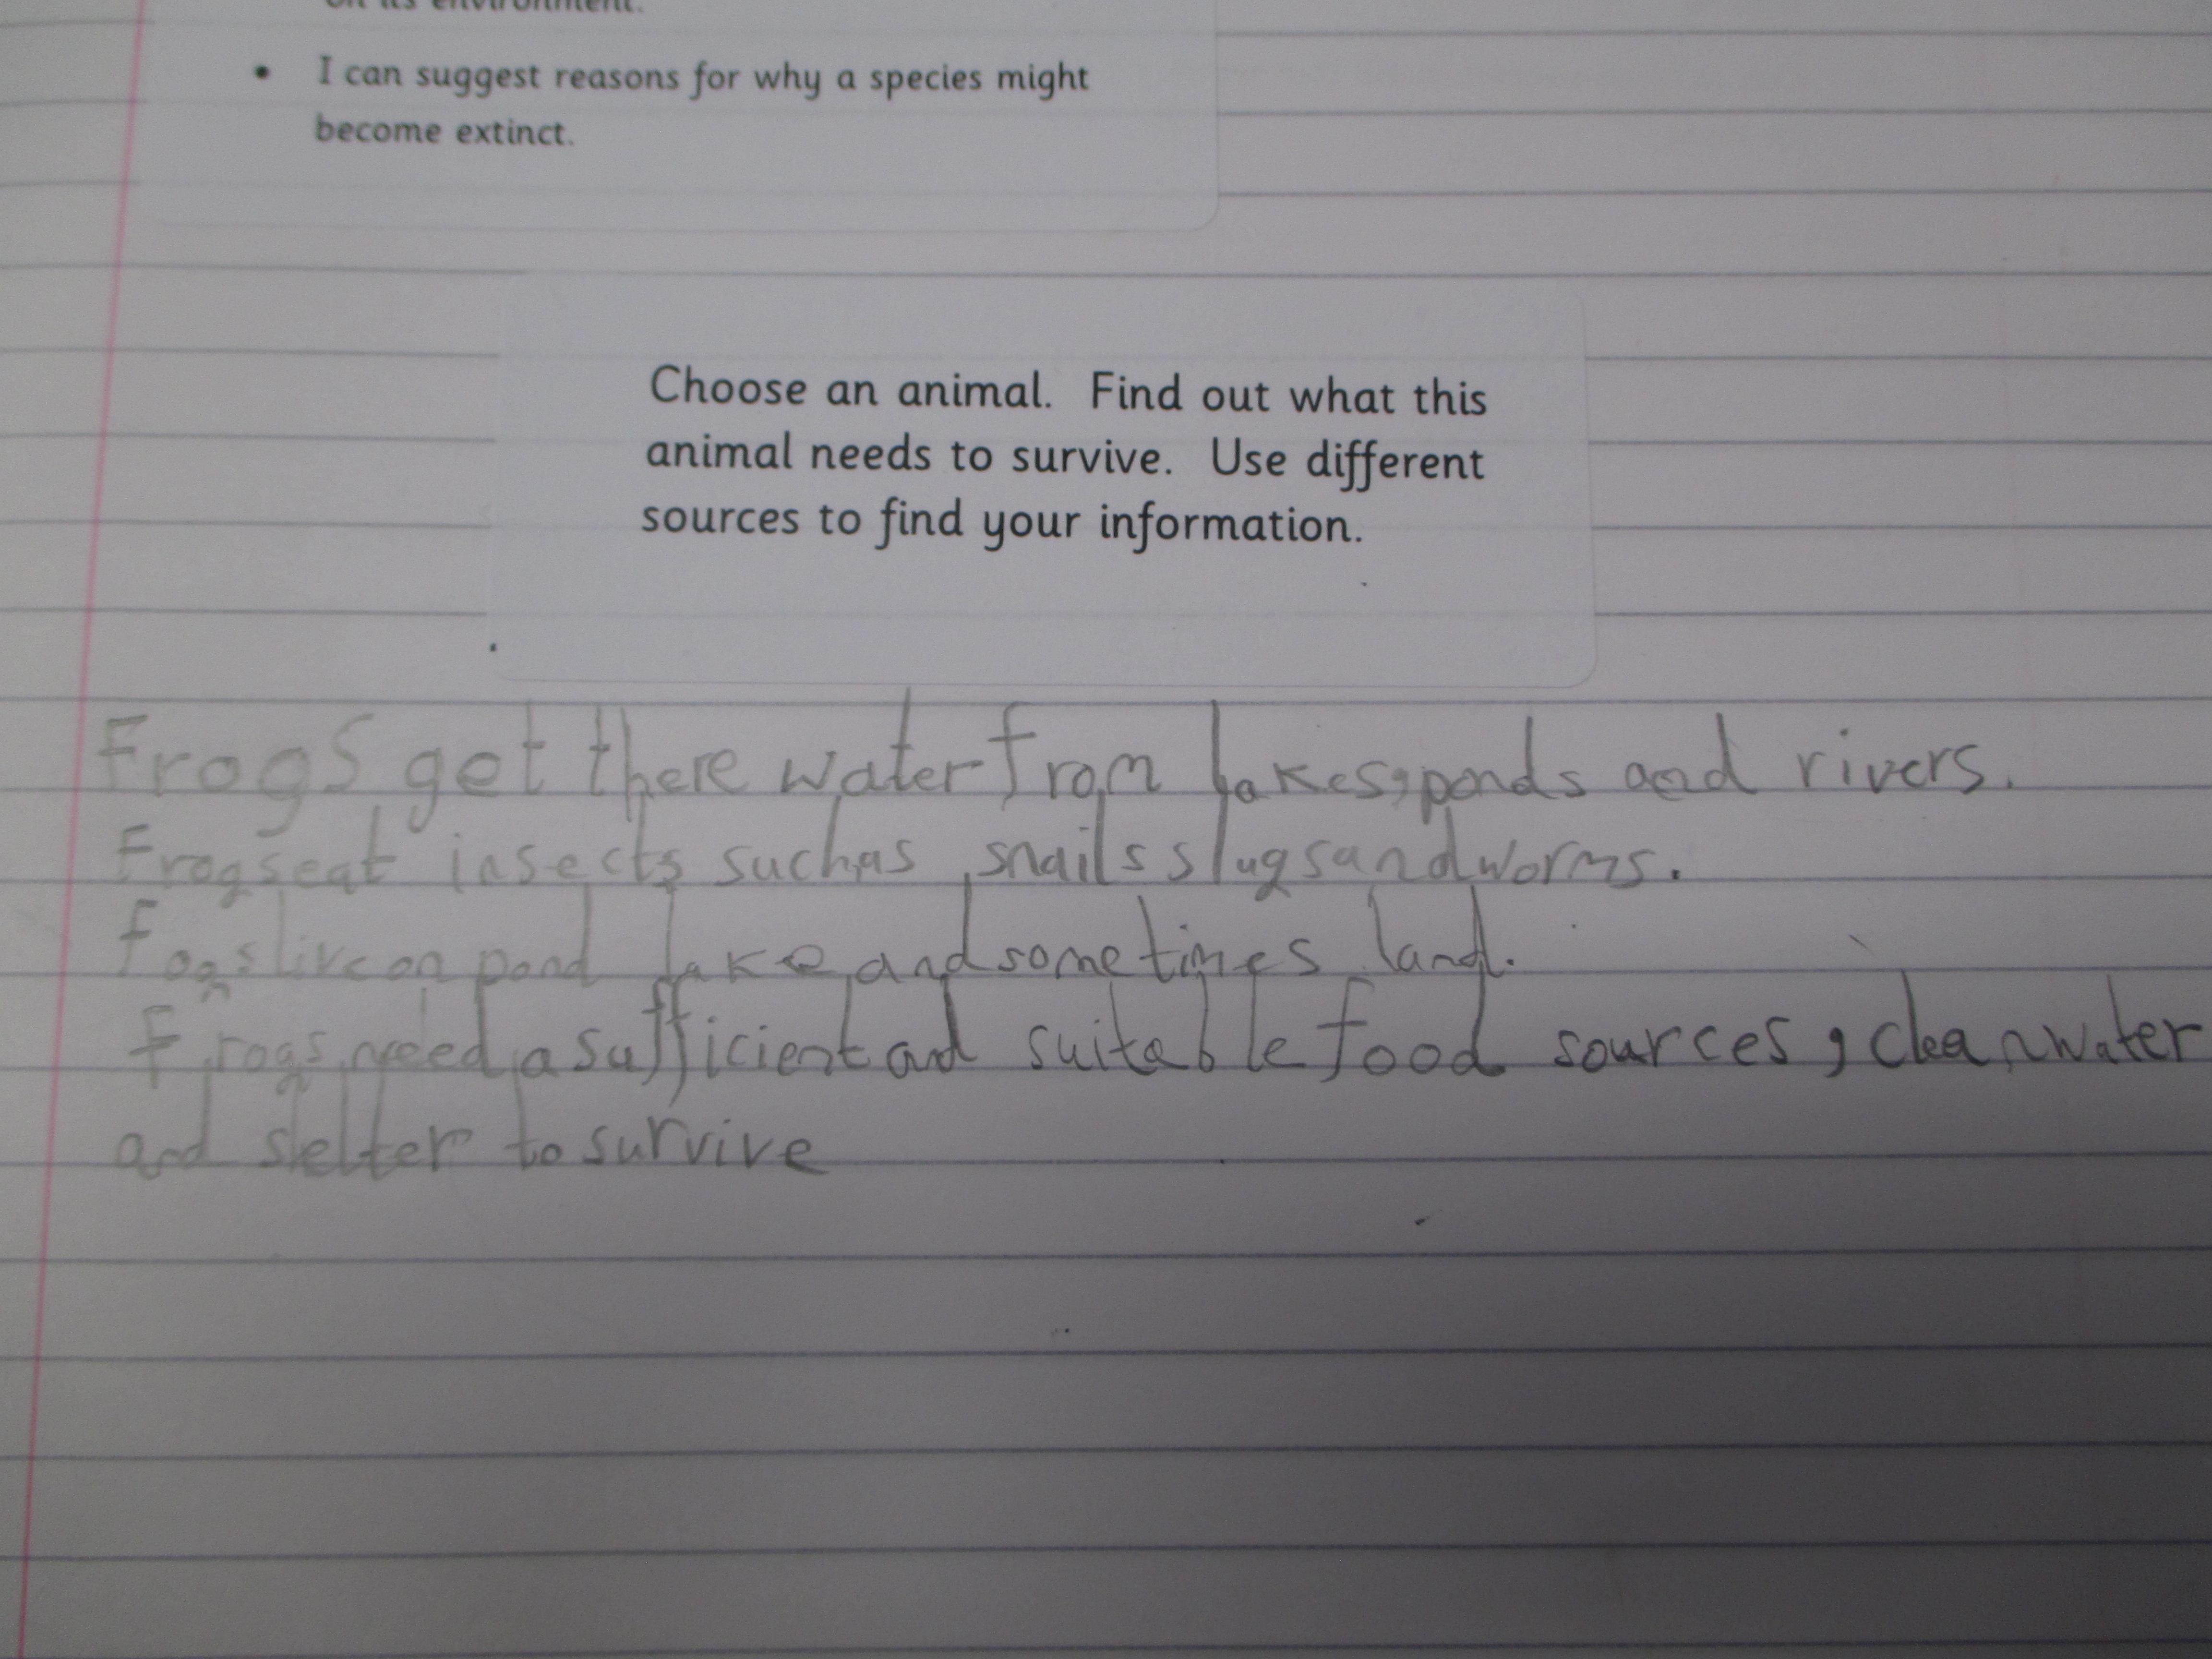 on its environment.
• I can suggest reasons for why a species might
become extinct.
Choose an animal. Find out what this
animal needs to survive. Use different
sources to find your information.
Frogs get there water from lakes, ponds and rivers.
Frogs eat insects such as snails slugs and worms.
Fogs live on pond lake and sometimes land.
Frogs need a sufficient and suitable food sources, clean water
and shelter to survive